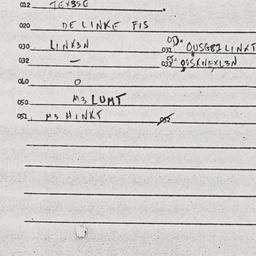 012 TEXBSG
020 DE LINKE FIS
030 LINX3N 031 OUSGB2 LINKT
032 - 033 QOSKNEXL3N
040 O
050 M3 LUMT
051 M3 HINKT 052